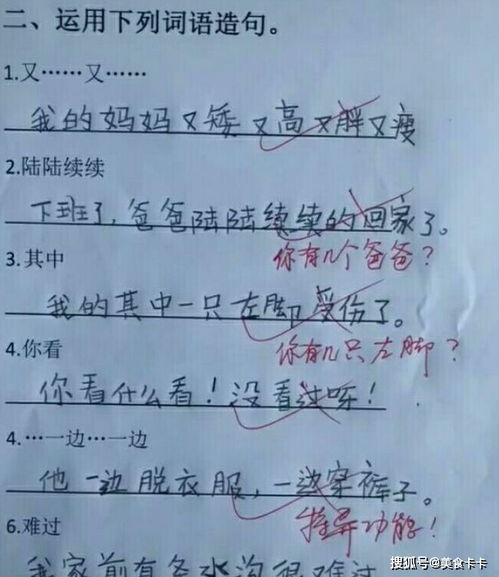 二、运用下列词语造句。
1.又……又……
我的妈妈又矮又高又胖又瘦
2.陆陆续续
下班了，爸爸陆陆续续的回家了。
你有几个爸爸？
3.其中
我的其中一只左脚受伤了。
你有几只左脚？
4.你看
你看什么看！没看过呀！
4.…一边…一边
他一边脱衣服，一边穿裤子。
特异功能！
6.难过
我家前有条水沟很难过
搜狐号@美食卡卡